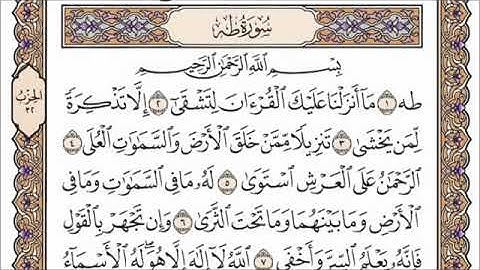 سُورَةُ طه
بِسْمِ ٱللَّهِ ٱلرَّحْمَٰنِ ٱلرَّحِيمِ
طه ١ مَآ أَنزَلْنَا عَلَيْكَ ٱلْقُرْءَانَ لِتَشْقَىٰٓ ٢ إِلَّا تَذْكِرَةً
لِّمَن يَخْشَىٰ ٣ تَنزِيلًا مِّمَّنْ خَلَقَ ٱلْأَرْضَ وَٱلسَّمَٰوَٰتِ ٱلْعُلَى ٤
ٱلرَّحْمَٰنُ عَلَى ٱلْعَرْشِ ٱسْتَوَىٰ ٥ لَهُۥ مَا فِى ٱلسَّمَٰوَٰتِ وَمَا فِى
ٱلْأَرْضِ وَمَا بَيْنَهُمَا وَمَا تَحْتَ ٱلثَّرَىٰ ٦ وَإِن تَجْهَرْ بِٱلْقَوْلِ
فَإِنَّهُۥ يَعْلَمُ ٱلسِّرَّ وَأَخْفَى ٧ ٱللَّهُ لَآ إِلَٰهَ إِلَّا هُوَ لَهُ ٱلْأَسْمَآءُ
الحِزْب
٣٢